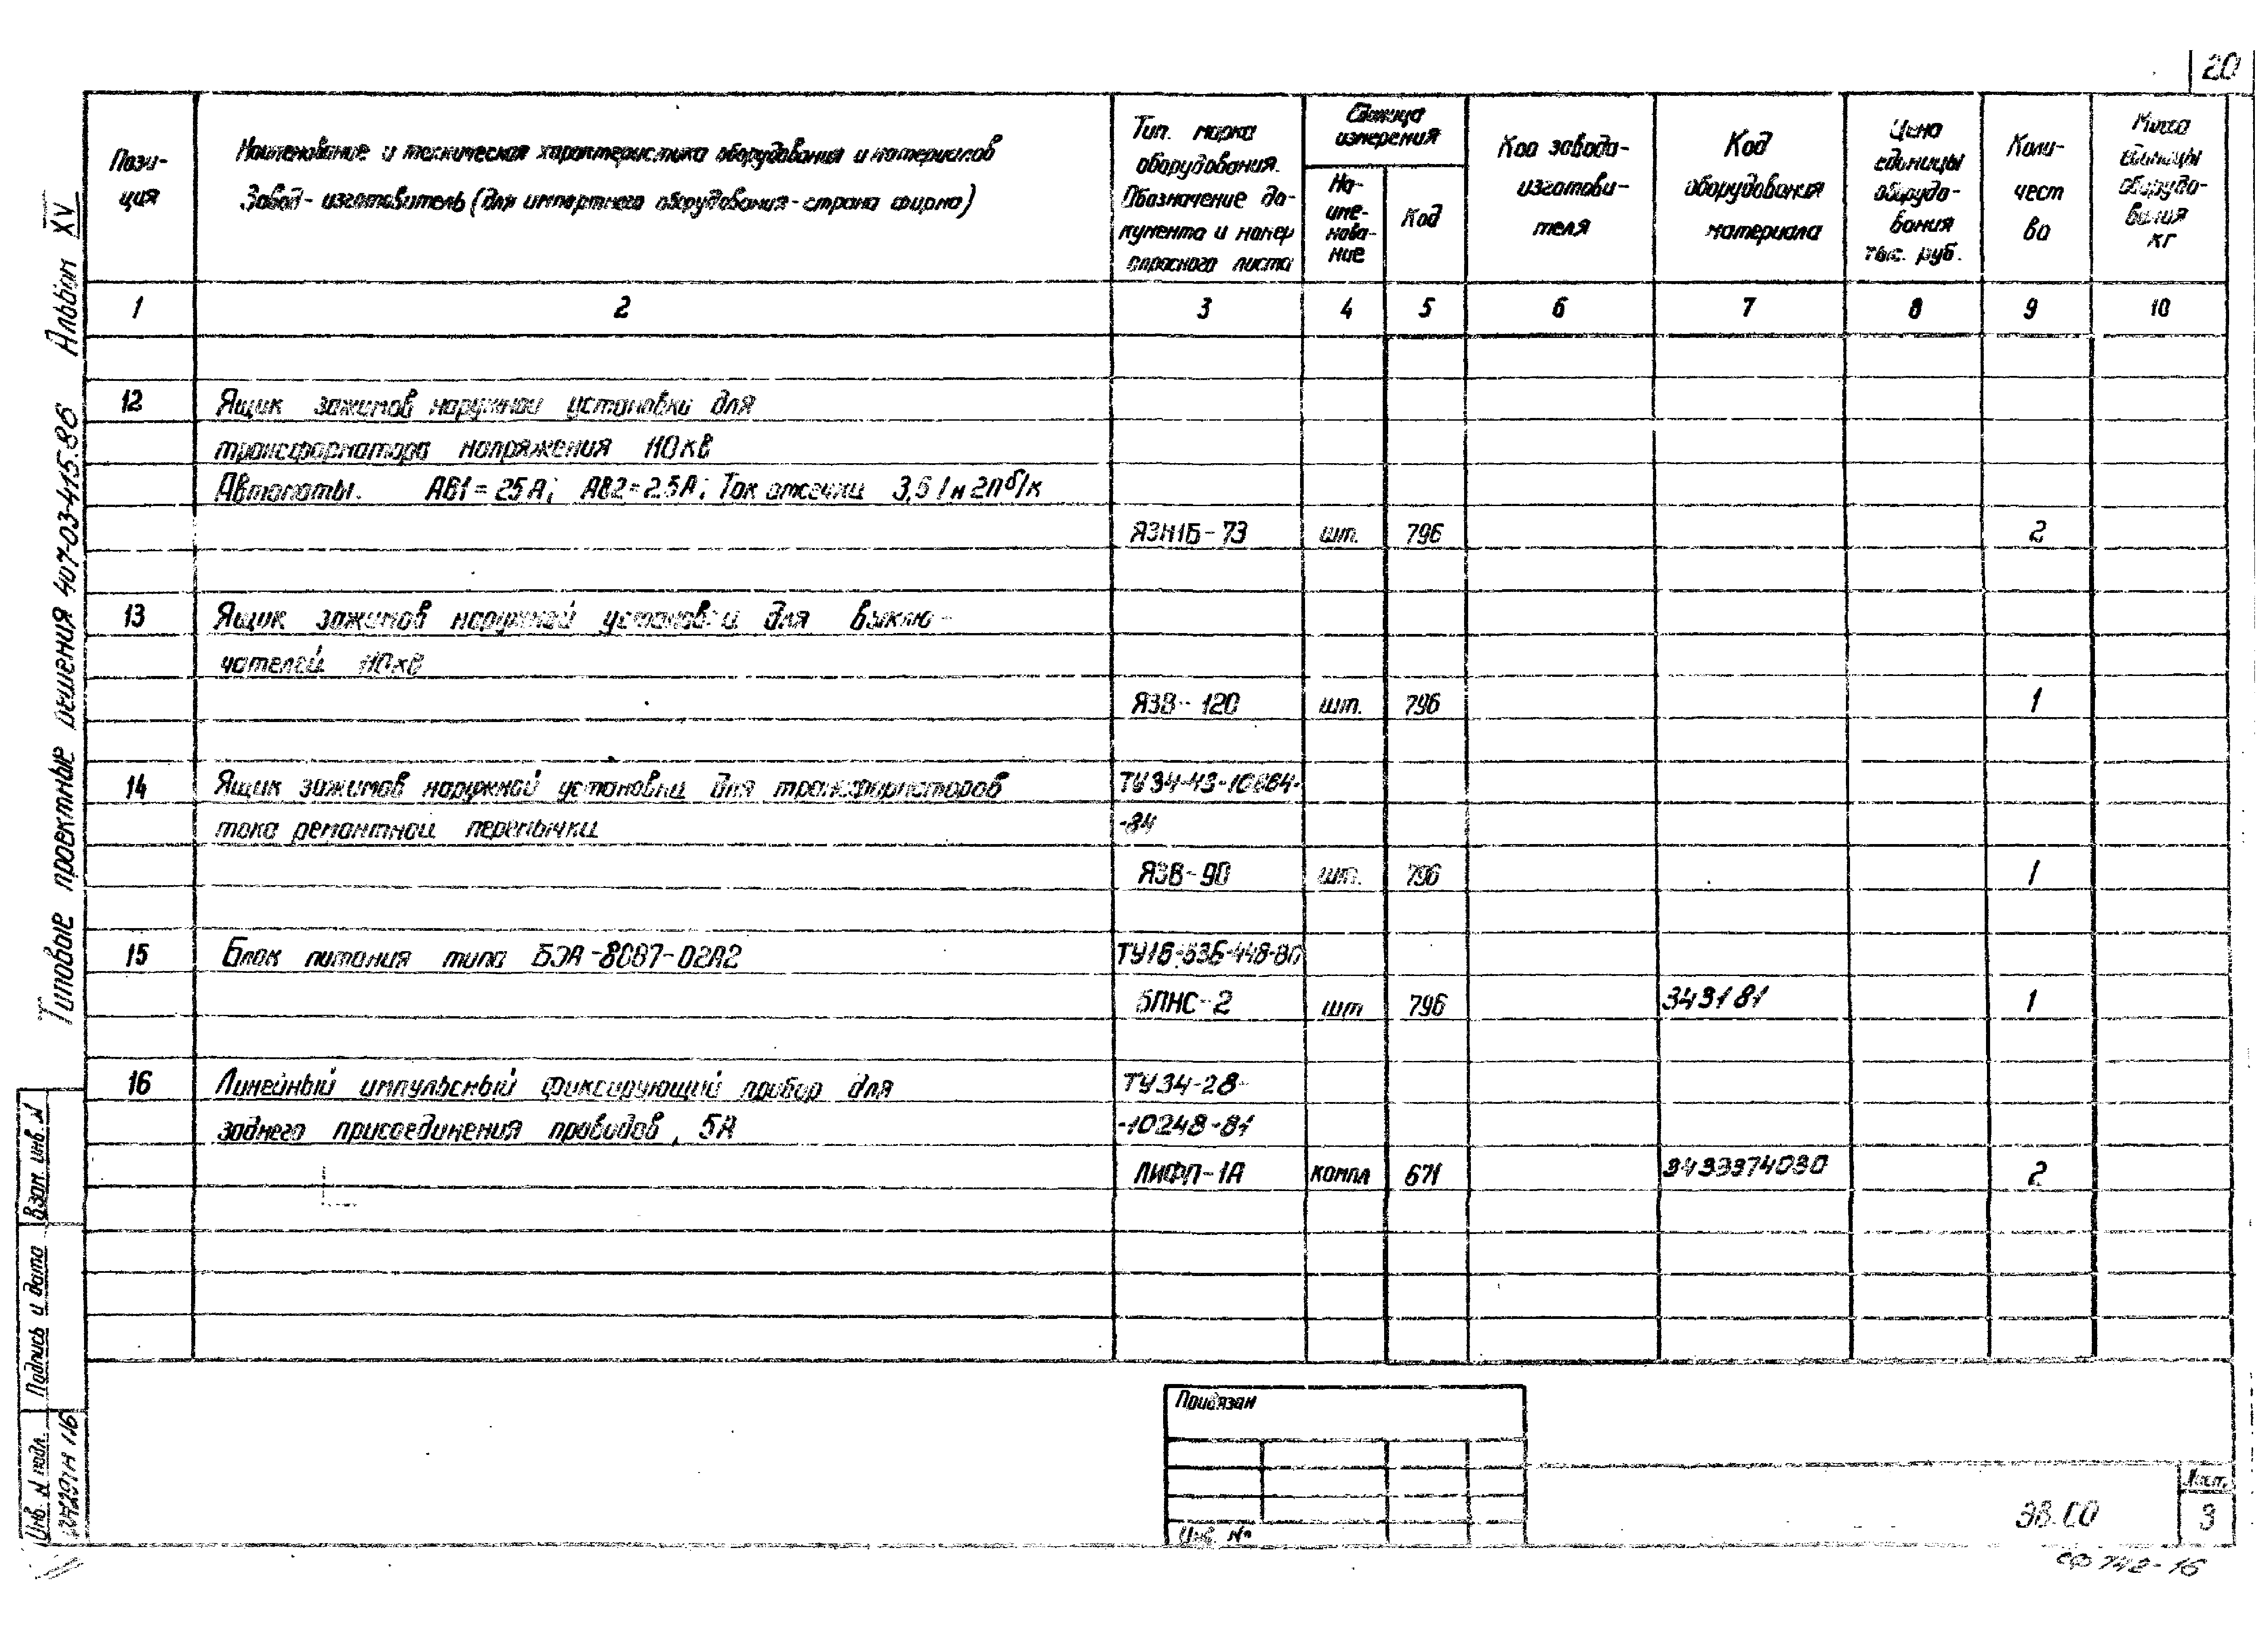 20
Пози-
ция
Наименование и техническая характеристика оборудования и материалов
Завод-изготовитель (для импортного оборудования-страна фирма)
Тип. марка
оборудования.
Обозначение до-
кумента и номер
опросного листа
Единица
измерения
На-
име-
нова-
ние
Код
Код завода-
изготови-
теля
Код
оборудования
материала
Цена
единицы
оборудо-
вания
тыс. руб.
Коли-
чест
во
Масса
единицы
оборудо-
вания
кг
1 2 3 4 5 6 7 8 9 10
12 Ящик зажимов наружной установки для
трансформатора напряжения 110кВ
Автоматы. АВ1=25А; АВ2=2.5А; Ток отсечки 3,5Iн
ЯЗН1Б-73 шт. 796 2
13 Ящик зажимов наружной установки для выклю-
чателей 110кВ
ЯЗВ-120 шт. 796 1
14 Ящик зажимов наружной установки для трансформаторов ТУ34-43-10664-
тока ремонтной перемычки -84
ЯЗВ-90 шт. 796 1
15 Блок питания типа БЭА-8087-02А2 ТУ16-536-448-80
БПНС-2 шт 796 343181 1
16 Линейный импульсный фиксирующий прибор для ТУ34-28-
заднего присоединения проводов, 5А -10248-81
ЛИФП-1А компл 671 3433374030 2
Типовые проектные решения 407-03-415.86 Альбом XV
Взам. инв. N
Подпись и дата
Инв. N подл.
Привязан
Инв. №
ЭВ.СО
Лист.
3
СФ 742-16